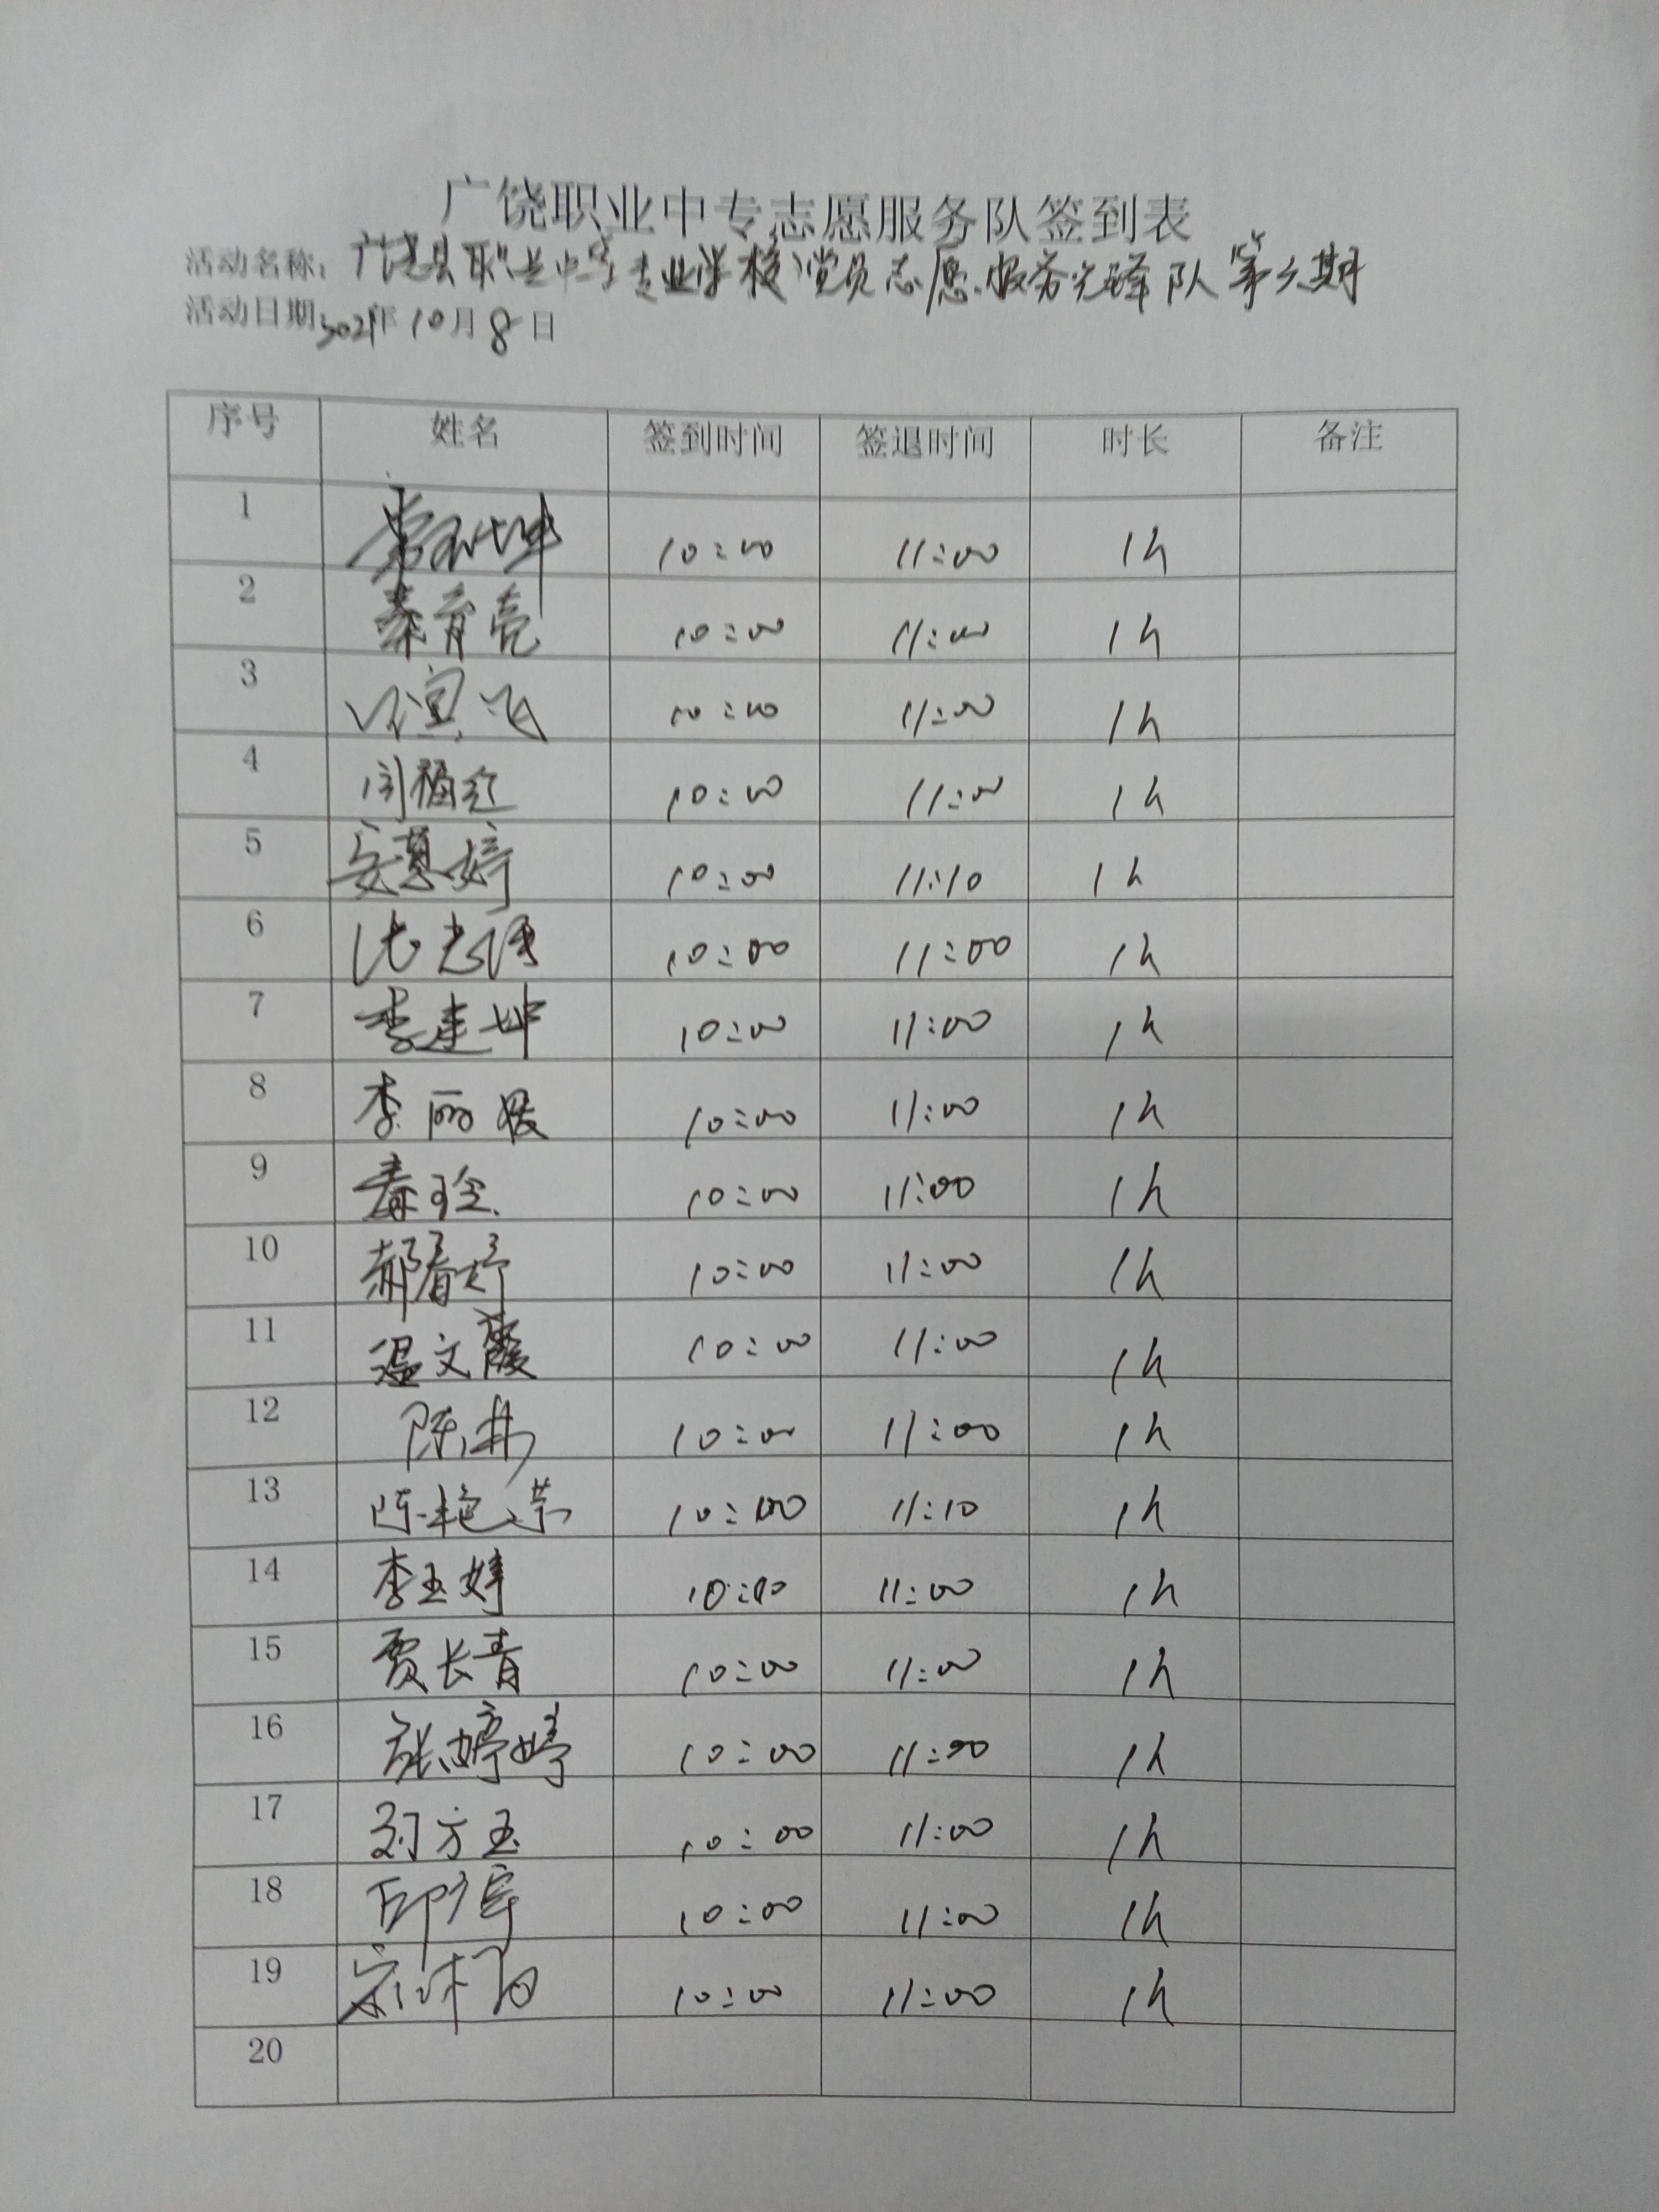 广饶职业中专志愿服务队签到表
活动名称：广饶县职业中等专业学校党员志愿服务先锋队第六期
活动日期2021年10月8日
序号 姓名 签到时间 签退时间 时长 备注
1 10:00 11:00 1h
2 秦育亮 10:00 11:00 1h
3 10:00 11:00 1h
4 闫福红 10:00 11:00 1h
5 安慧婷 10:00 11:10 1h
6 10:00 11:00 1h
7 李建坤 10:00 11:00 1h
8 李丽媛 10:00 11:00 1h
9 10:00 11:00 1h
10 郝春婷 10:00 11:00 1h
11 温文霞 10:00 11:00 1h
12 陈 10:00 11:00 1h
13 陈艳芬 10:00 11:10 1h
14 李玉婷 10:00 11:00 1h
15 贾长青 10:00 11:00 1h
16 张婷婷 10:00 11:00 1h
17 刘方玉 10:00 11:00 1h
18 10:00 11:00 1h
19 10:00 11:00 1h
20